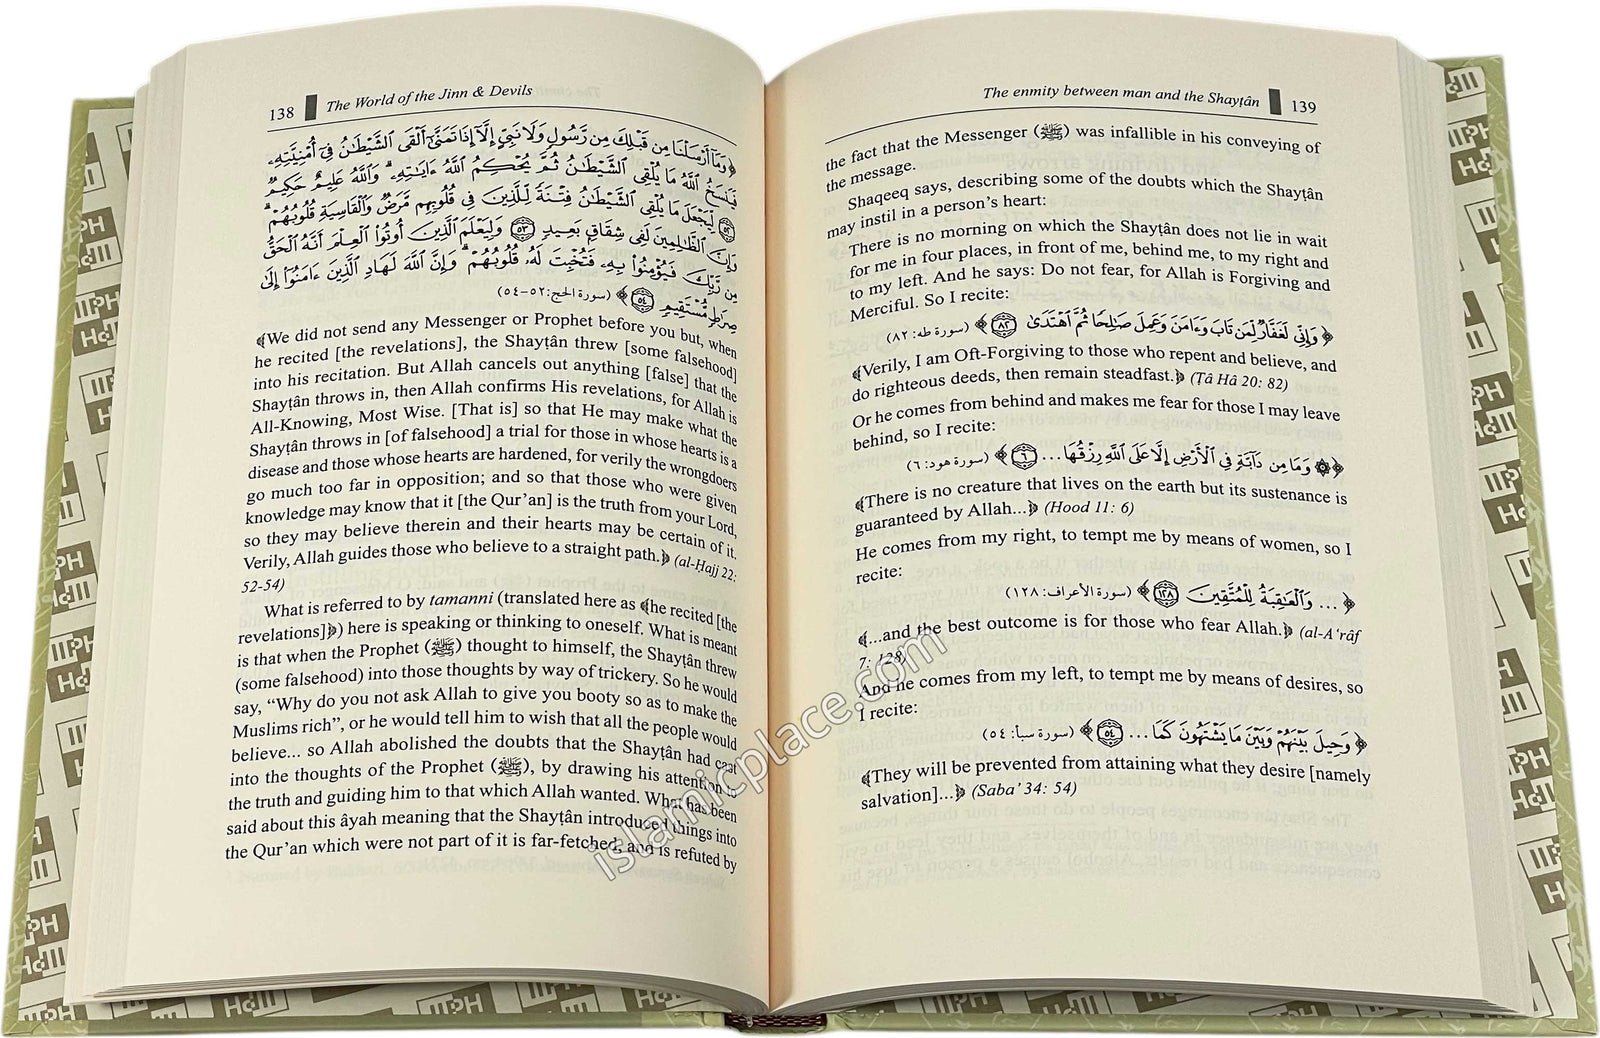 138 The World of the Jinn & Devils
﴿وَمَآ أَرْسَلْنَا مِن قَبْلِكَ مِن رَّسُولٍ وَلَا نَبِيٍّ إِلَّآ إِذَا تَمَنَّىٰٓ أَلْقَى ٱلشَّيْطَٰنُ فِىٓ أُمْنِيَّتِهِۦ
فَيَنسَخُ ٱللَّهُ مَا يُلْقِى ٱلشَّيْطَٰنُ ثُمَّ يُحْكِمُ ٱللَّهُ ءَايَٰتِهِۦ ۗ وَٱللَّهُ عَلِيمٌ حَكِيمٌ
۝٥٢ لِّيَجْعَلَ مَا يُلْقِى ٱلشَّيْطَٰنُ فِتْنَةً لِّلَّذِينَ فِى قُلُوبِهِم مَّرَضٌ وَٱلْقَاسِيَةِ قُلُوبُهُمْ ۗ
وَإِنَّ ٱلظَّٰلِمِينَ لَفِى شِقَاقٍۭ بَعِيدٍ ۝٥٣ وَلِيَعْلَمَ ٱلَّذِينَ أُوتُوا۟ ٱلْعِلْمَ أَنَّهُ ٱلْحَقُّ
مِن رَّبِّكَ فَيُؤْمِنُوا۟ بِهِۦ فَتُخْبِتَ لَهُۥ قُلُوبُهُمْ ۗ وَإِنَّ ٱللَّهَ لَهَادِ ٱلَّذِينَ ءَامَنُوٓا۟ إِلَىٰ
صِرَٰطٍ مُّسْتَقِيمٍ ۝٥٤﴾ (سورة الحج: ٥٢-٥٤)
﴾We did not send any Messenger or Prophet before you but, when
he recited [the revelations], the Shayṭân threw [some falsehood]
into his recitation. But Allah cancels out anything [false] that the
Shayṭân throws in, then Allah confirms His revelations, for Allah is
All-Knowing, Most Wise. [That is] so that He may make what the
Shayṭân throws in [of falsehood] a trial for those in whose hearts is a
disease and those whose hearts are hardened, for verily the wrongdoers
go much too far in opposition; and so that those who were given
knowledge may know that it [the Qur'an] is the truth from your Lord,
so they may believe therein and their hearts may be certain of it.
Verily, Allah guides those who believe to a straight path.﴿ (al-Ḥajj 22:
52-54)
What is referred to by tamanni (translated here as ﴾he recited [the
revelations]﴿) here is speaking or thinking to oneself. What is meant
is that when the Prophet (ﷺ) thought to himself, the Shayṭân threw
(some falsehood) into those thoughts by way of trickery. So he would
say, “Why do you not ask Allah to give you booty so as to make the
Muslims rich”, or he would tell him to wish that all the people would
believe... so Allah abolished the doubts that the Shayṭân had cast
into the thoughts of the Prophet (ﷺ), by drawing his attention to
the truth and guiding him to that which Allah wanted. What has been
said about this âyah meaning that the Shayṭân introduced things into
the Qur'an which were not part of it is far-fetched, and is refuted by
The enmity between man and the Shayṭân 139
the fact that the Messenger (ﷺ) was infallible in his conveying of
the message.
Shaqeeq says, describing some of the doubts which the Shayṭân
may instil in a person's heart:
There is no morning on which the Shayṭân does not lie in wait
for me in four places, in front of me, behind me, to my right and
to my left. And he says: Do not fear, for Allah is Forgiving and
Merciful. So I recite:
﴿وَإِنِّى لَغَفَّارٌ لِّمَن تَابَ وَءَامَنَ وَعَمِلَ صَٰلِحًا ثُمَّ ٱهْتَدَىٰ ۝٨٢﴾ (سورة طه: ٨٢)
﴾Verily, I am Oft-Forgiving to those who repent and believe, and
do righteous deeds, then remain steadfast.﴿ (Ṭâ Hâ 20: 82)
Or he comes from behind and makes me fear for those I may leave
behind, so I recite:
﴿۞ وَمَا مِن دَآبَّةٍ فِى ٱلْأَرْضِ إِلَّا عَلَى ٱللَّهِ رِزْقُهَا... ۝٦﴾ (سورة هود: ٦)
﴾There is no creature that lives on the earth but its sustenance is
guaranteed by Allah...﴿ (Hood 11: 6)
He comes from my right, to tempt me by means of women, so I
recite:
﴿... وَٱلْعَٰقِبَةُ لِلْمُتَّقِينَ ۝١٢٨﴾ (سورة الأعراف: ١٢٨)
﴾...and the best outcome is for those who fear Allah.﴿ (al-A‘râf
7: 128)
And he comes from my left, to tempt me by means of desires, so
I recite:
﴿وَحِيلَ بَيْنَهُمْ وَبَيْنَ مَا يَشْتَهُونَ كَمَا... ۝٥٤﴾ (سورة سبأ: ٥٤)
﴾They will be prevented from attaining what they desire [namely
salvation]...﴿ (Saba’ 34: 54)
islamicplace.com